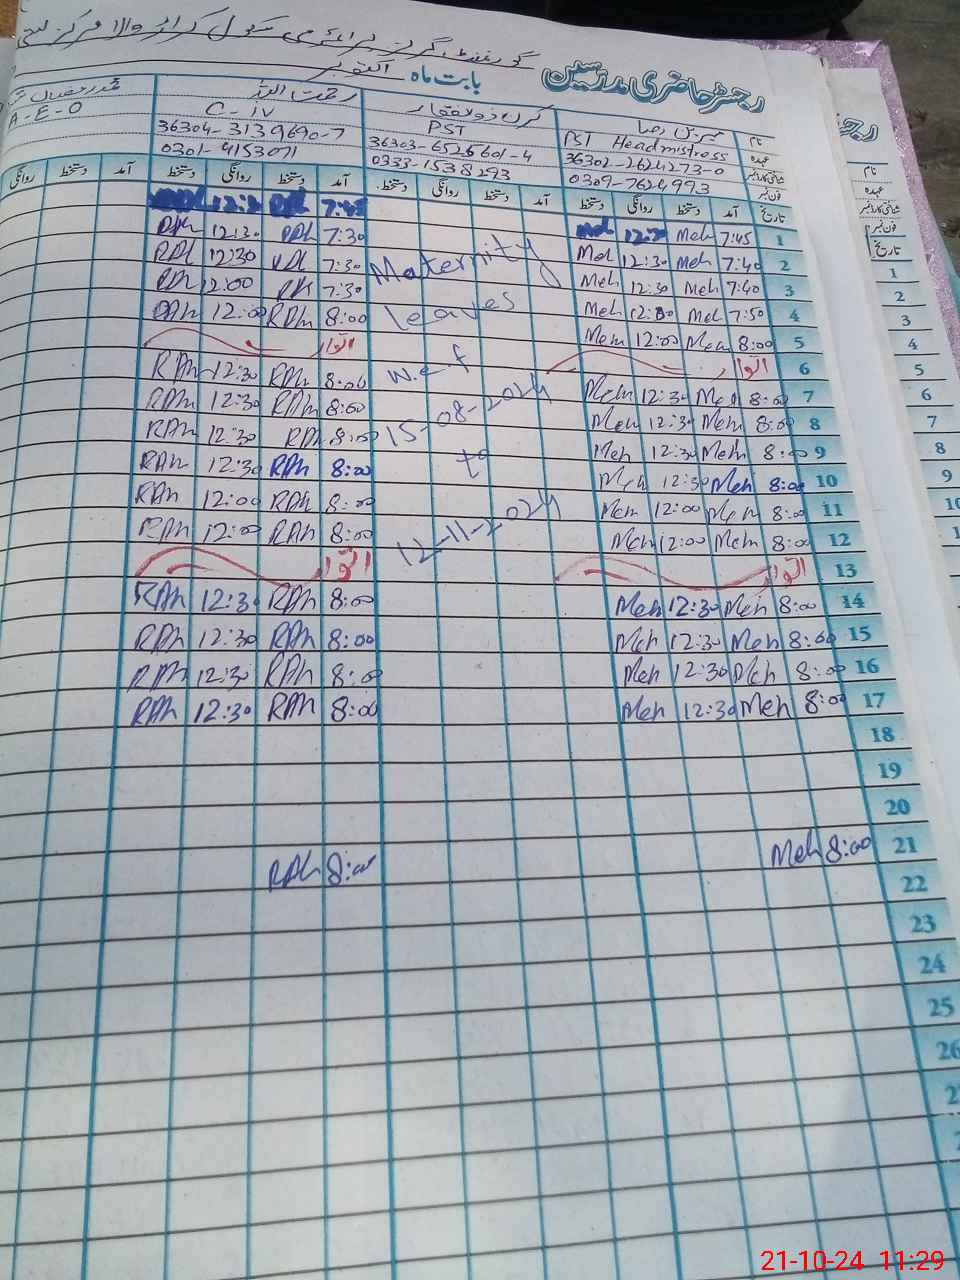 رجسٹر حاضری مدرسین
بابت ماہ اکتوبر
گورنمنٹ گرلز پرائمری سکول
نام
عہدہ
شناختی کارڈ نمبر
فون نمبر
PST Headmistress
36302-2624273-0
0309-7624993
کرن ذوالفقار
PST
36303-6526601-4
0333-1538293
رحمت اللہ
C-iv
36304-3139690-7
0301-4153071
A-E-O
تاریخ آمد دستخط روانگی دستخط آمد دستخط روانگی دستخط آمد دستخط روانگی دستخط آمد دستخط روانگی
1 7:45 Meh 7:45
2 7:40 Meh 12:30 Meh 7:30 12:30
3 7:40 Meh 12:30 Meh 7:30 12:30
4 7:50 Meh Meh 7:30 12:00
5 8:00 Meh 12:00 Meh 8:00 RAh 12:00
6 اتوار اتوار
7 8:00 Meh 12:30 Meh 8:00 RAh 12:30 RAh
8 8:00 Meh 12:30 Meh 8:00 RAh 12:30 RAh
9 8:00 Meh 12:30 Meh 8:00 RAh 12:30 RAh
10 8:00 Meh 12:30 Meh 8:00 RAh 12:30 RAh
11 8:00 Meh 12:00 Meh 8:00 RAh 12:00 RAh
12 8:00 Meh 12:00 Meh 8:00 RAh 12:00 RAh
13 اتوار اتوار
14 8:00 Meh 12:30 Meh 8:00 RAh 12:30 RAh
15 8:00 Meh 12:30 Meh 8:00 RAh 12:30 RAh
16 8:00 Meh 12:30 Meh 8:00 RAh 12:30 RAh
17 8:00 Meh 12:30 Meh 8:00 RAh 12:30 RAh
18
19
20
21 8:00 Meh 8:00 RAh
22
23
24
25
26
Maternity
leaves
w.e.f
15-08-2024
to
12-11-2024
نام
عہدہ
شناختی کارڈ نمبر
فون نمبر
تاریخ
1
2
3
4
5
6
7
8
9
10
21-10-24 11:29